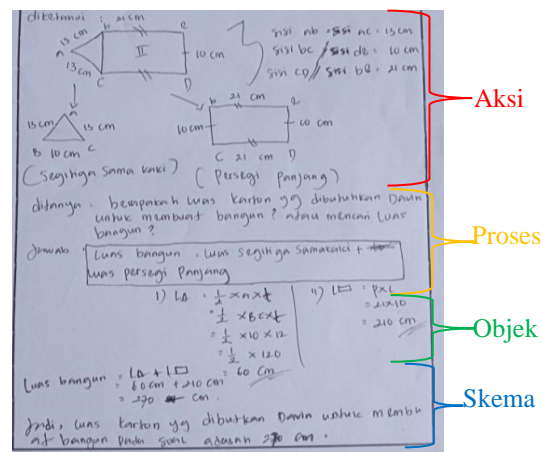 diketahui
b 21 cm e
13 cm
A
II
10 cm
13 cm
C D
sisi ab = sisi ac = 13 cm
sisi bc // sisi de = 10 cm
sisi CD // sisi be = 21 cm
Aksi
b 21 cm e
A
13 cm 13 cm
10 cm 10 cm
B 10 cm C
C 21 cm D
(Segitiga sama kaki) (Persegi Panjang)
ditanya : berapakah luas karton yg dibutuhkan Davin
untuk membuat bangun? atau mencari luas
bangun?
Proses
Jawab : Luas bangun = Luas segitiga samakaki +
luas persegi panjang
1) L△ = 1/2 x a x t
= 1/2 x BC x t
= 1/2 x 10 x 12
= 1/2 x 120
= 60 cm
11) L▭ = P x L
= 21 x 10
= 210 cm
Objek
Luas bangun = L△ + L▭
= 60 cm + 210 cm
= 270 cm
Skema
Jadi, luas karton yg dibutkan Davin untuk membu
at bangun pada soal adalah 270 cm.